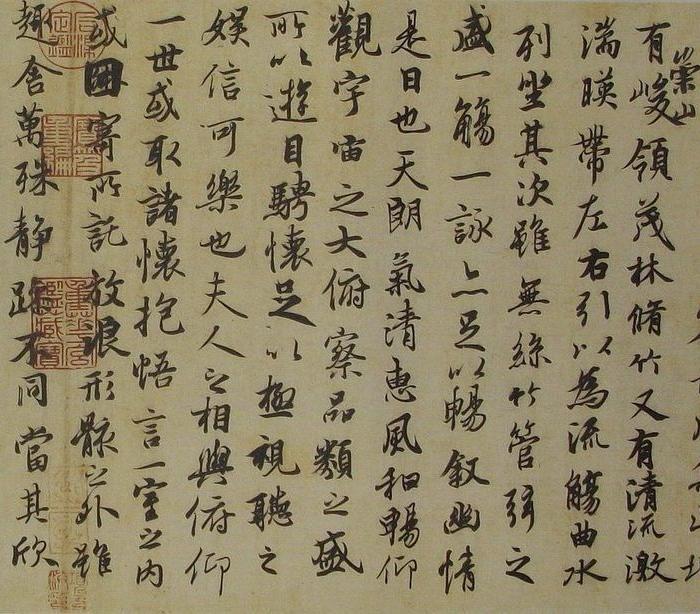 崇山
有峻領茂林脩竹又有清流激
湍暎帶左右引以為流觴曲水
列坐其次雖無絲竹管弦之
盛一觴一詠亦足以暢敘幽情
是日也天朗氣清惠風和暢仰
觀宇宙之大俯察品類之盛
所以遊目騁懷足以極視聽之
娛信可樂也夫人之相與俯仰
一世或取諸懷抱悟言一室之內
或因寄所託放浪形骸之外雖
趣舍萬殊靜躁不同當其欣